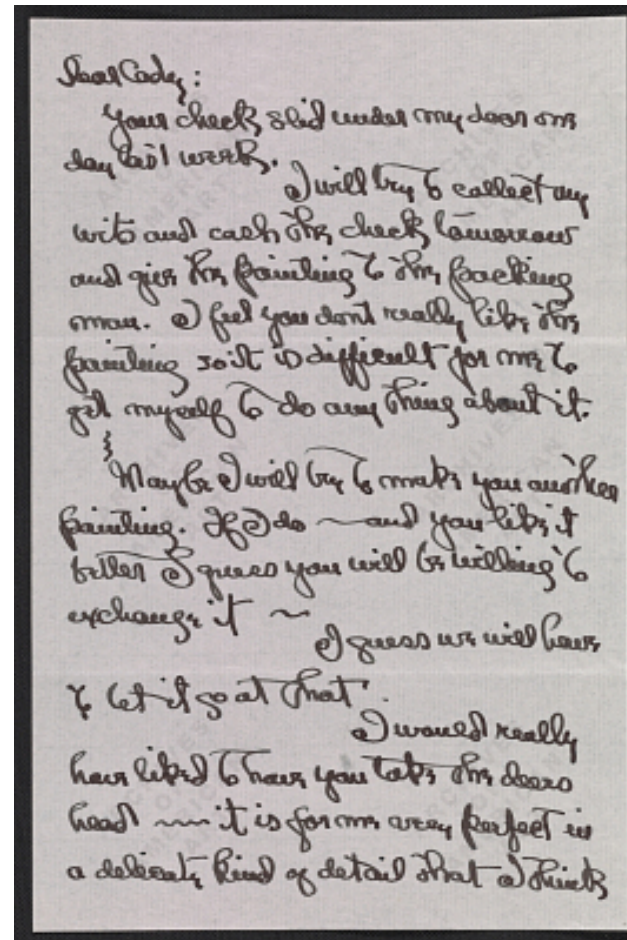 Dear Cady:
Your check slid under my door one
day last week.
I will try to collect my
wits and cash the check tomorrow
and give the painting to the packing
man. I feel you dont really like the
painting so it is difficult for me to
get myself to do any thing about it.
Maybe I will try to make you another
painting. If I do ~ and you like it
better I guess you will be willing to
exchange it ~
I guess we will have
to let it go at that.
I would really
have liked to have you take the deers
head ~ it is for me very perfect in
a delicate kind of detail that I think
ARCHIVES
OF
AMERICAN
ART